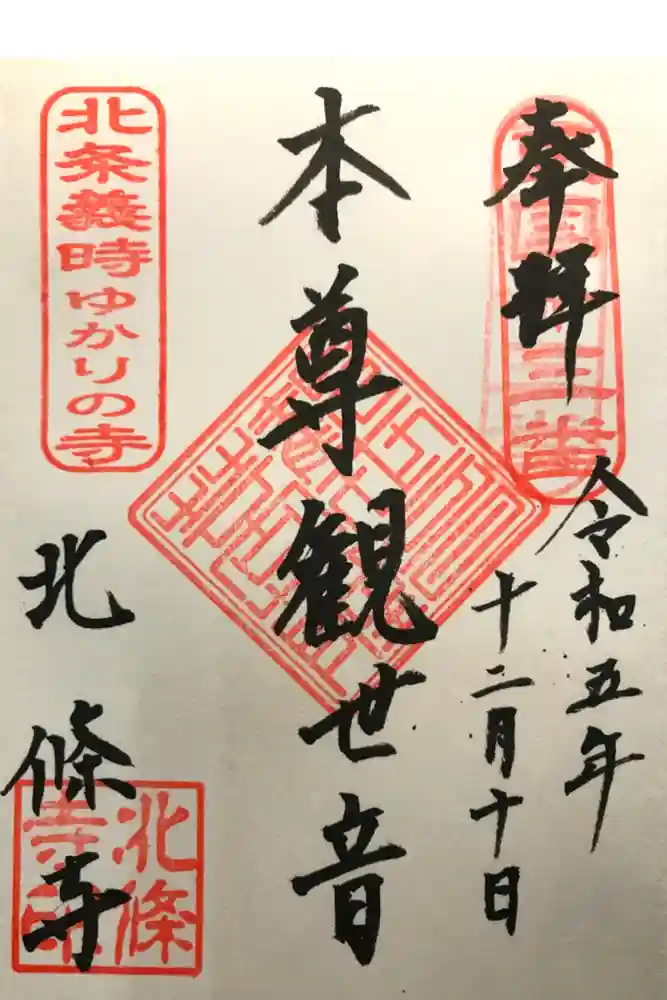 奉拝
令和五年
十二月十日
本尊観世音
北条義時ゆかりの寺
北條寺
北條
寺印